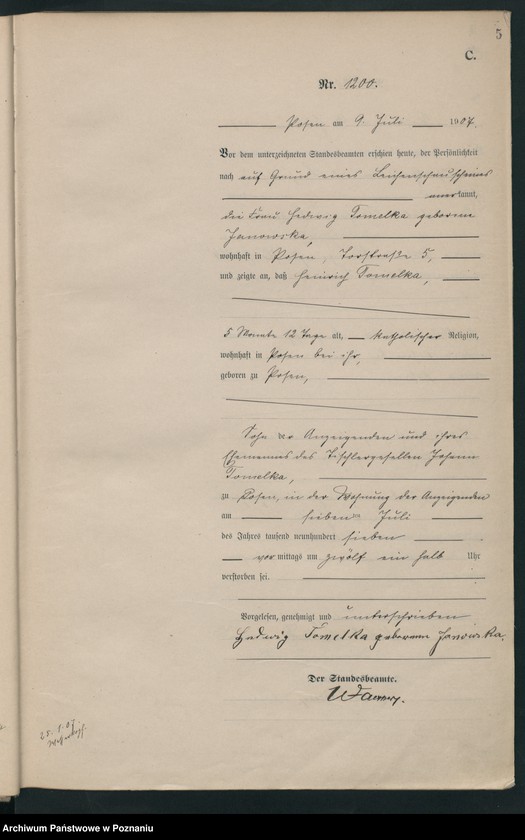 5
C.
Nr. 1200.
Posen am 9. Juli 1907.
Vor dem unterzeichneten Standesbeamten erschien heute, der Persönlichkeit
nach auf Grund eines Leichenschauscheines
anerkannt,
die Frau Hedwig Tomelka geborene
Janowska,
wohnhaft in Posen, Torstraße 5,
und zeigte an, daß Heinrich Tomelka,
5 Monate 12 Tage alt, katholischer Religion,
wohnhaft in Posen bei ihr,
geboren zu Posen,
Sohn der Anzeigenden und ihres
Ehemannes des Tischlergesellen Johann
Tomelka,
zu Posen, in der Wohnung der Anzeigenden
am sieben ten Juli
des Jahres tausend neunhundert sieben
vor mittags um zwölf ein halb Uhr
verstorben sei.
Vorgelesen, genehmigt und unterschrieben
Hedwig Tomelka geborene Janowska.
Der Standesbeamte.
Archiwum Państwowe w Poznaniu